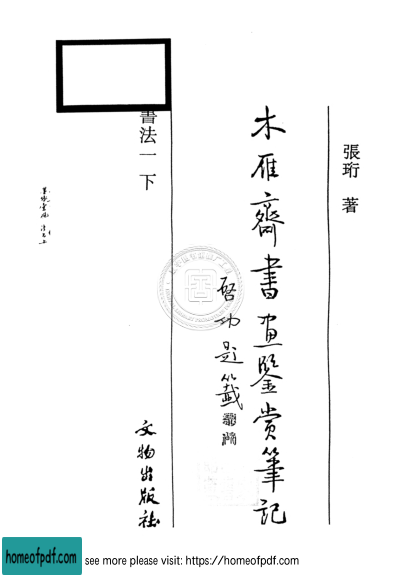 張珩 著
木雁齋書畫鑒賞筆記
啓功題籤
書法一 下
文物出版社
homeofpdf.com
see more please visit: https://homeofpdf.com